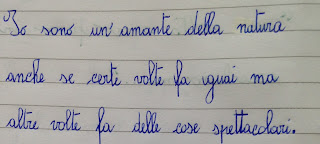 Io sono un' amante della natura
anche se certe volte fa guai ma
altre volte fa delle cose spettacolari.